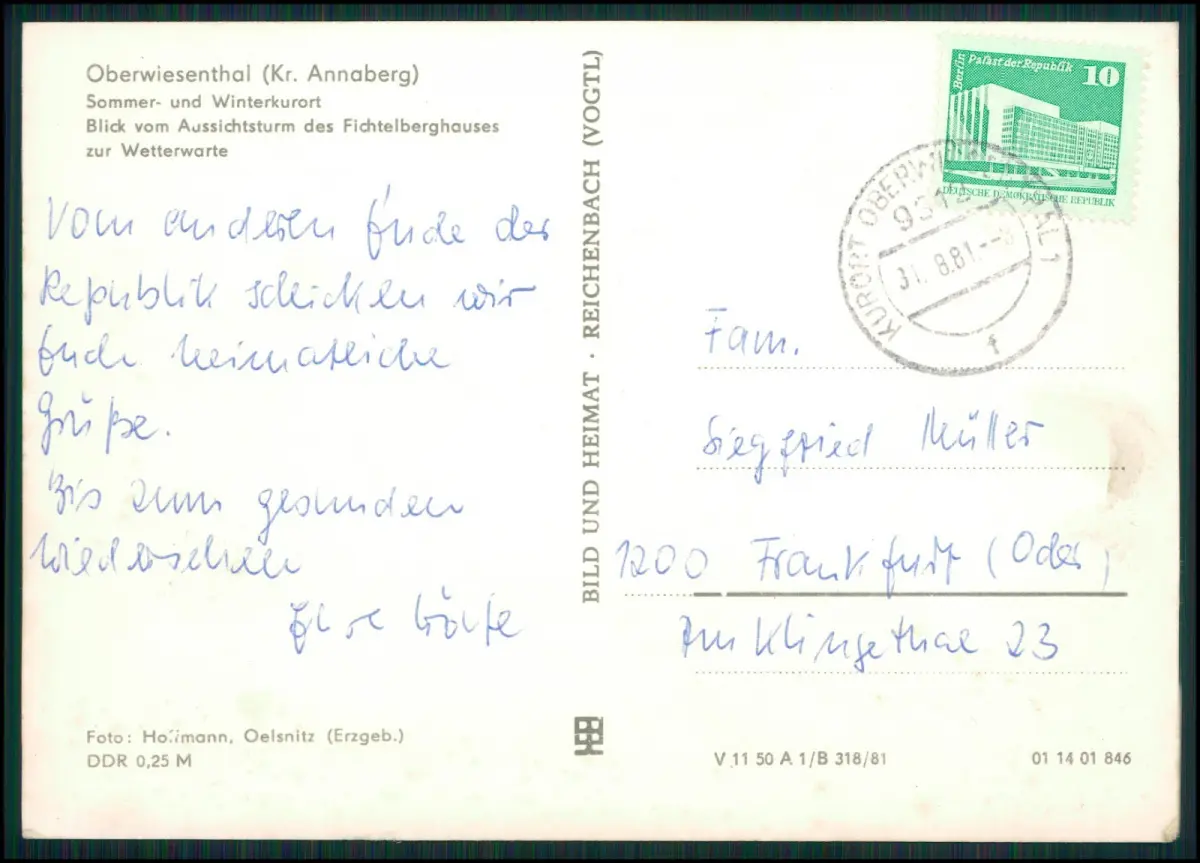 Oberwiesenthal (Kr. Annaberg)
Sommer- und Winterkurort
Blick vom Aussichtsturm des Fichtelberghauses
zur Wetterwarte
Vom anderen Ende der
Republik schicken wir
Euch heimatliche
Grüße.
Bis zum gesunden
Wiedersehen
BILD UND HEIMAT · REICHENBACH (VOGTL)
Berlin Palast der Republik 10
DEUTSCHE DEMOKRATISCHE REPUBLIK
KURORT OBERWIESENTHAL 1
31. 8.81
f
Fam.
Siegfried Müller
1200 Frankfurt (Oder)
Am Klingethal 23
Foto: Hoffmann, Oelsnitz (Erzgeb.)
DDR 0,25 M
V 11 50 A 1/B 318/81
01 14 01 846